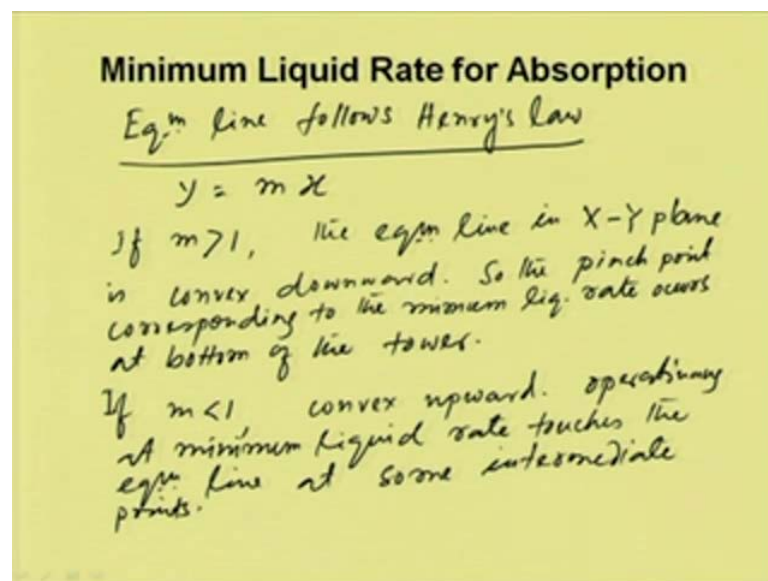 Minimum Liquid Rate for Absorption
Eqm line follows Henry's law
y = m x
If m > 1, the eqm line in X-Y plane
is convex downward. So the pinch point
corresponding to the minimum liq. rate occurs
at bottom of the tower.
If m < 1, convex upward. operating
at minimum liquid rate touches the
eqm line at some intermediate
points.